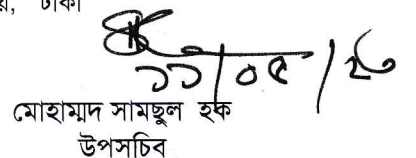 য়, ঢাকা
১১/০৫/২৬
মোহাম্মদ সামছুল হক
উপসচিব